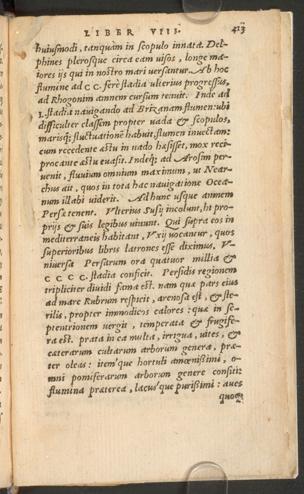 LIBER VIII. 413
huiusmodi, tanquam in scopulo innata. Del-
phines plerosque circa eam uisos, longe ma-
iores ijs qui in nostro mari uersantur. Ab hoc
flumine ad CC. ferè stadia ulterius progressus,
ad Rhogonim amnem cursum tenuit. Inde ad
L. stadia nauigando ad Brizanam flumen: ubi
difficulter classem propter uada & scopulos,
marisq; fluctuationē habuit, flumen inuectam:
cum recedente æstu in uado hæsisset, mox reci-
procante æstu euasit. Indeq; ad Arosim per-
uenit, fluuium omnium maximum, ut Near-
chus ait, quos in tota hac nauigatione Ocea-
num illabi uiderit. Ad hunc usque amnem
Persæ tenent. Vlterius Susij incolunt, hi pro-
prijs & suis legibus uiuunt. Qui supra eos in
mediterraneis habitant, Vxij uocantur, quos
superioribus libris latrones esse diximus. V-
niuersa Persarum ora quatuor millia &
CCCC. stadia conficit. Persidis regionem
tripliciter diuidi fama est. nam quæ pars eius
ad mare Rubrum respicit, arenosa est, & ste-
rilis, propter immodicos calores: quæ in se-
ptentrionem uergit, temperata & frugife-
ra est. prata in ea multa, irrigua, uites, &
cæterarum cultarum arborum genera, præ-
ter oleas: item'que hortuli amœnißimi, o-
mni pomiferarum arborum genere consiti:
flumina præterea, lacus'que purißimi: aues
quoq;